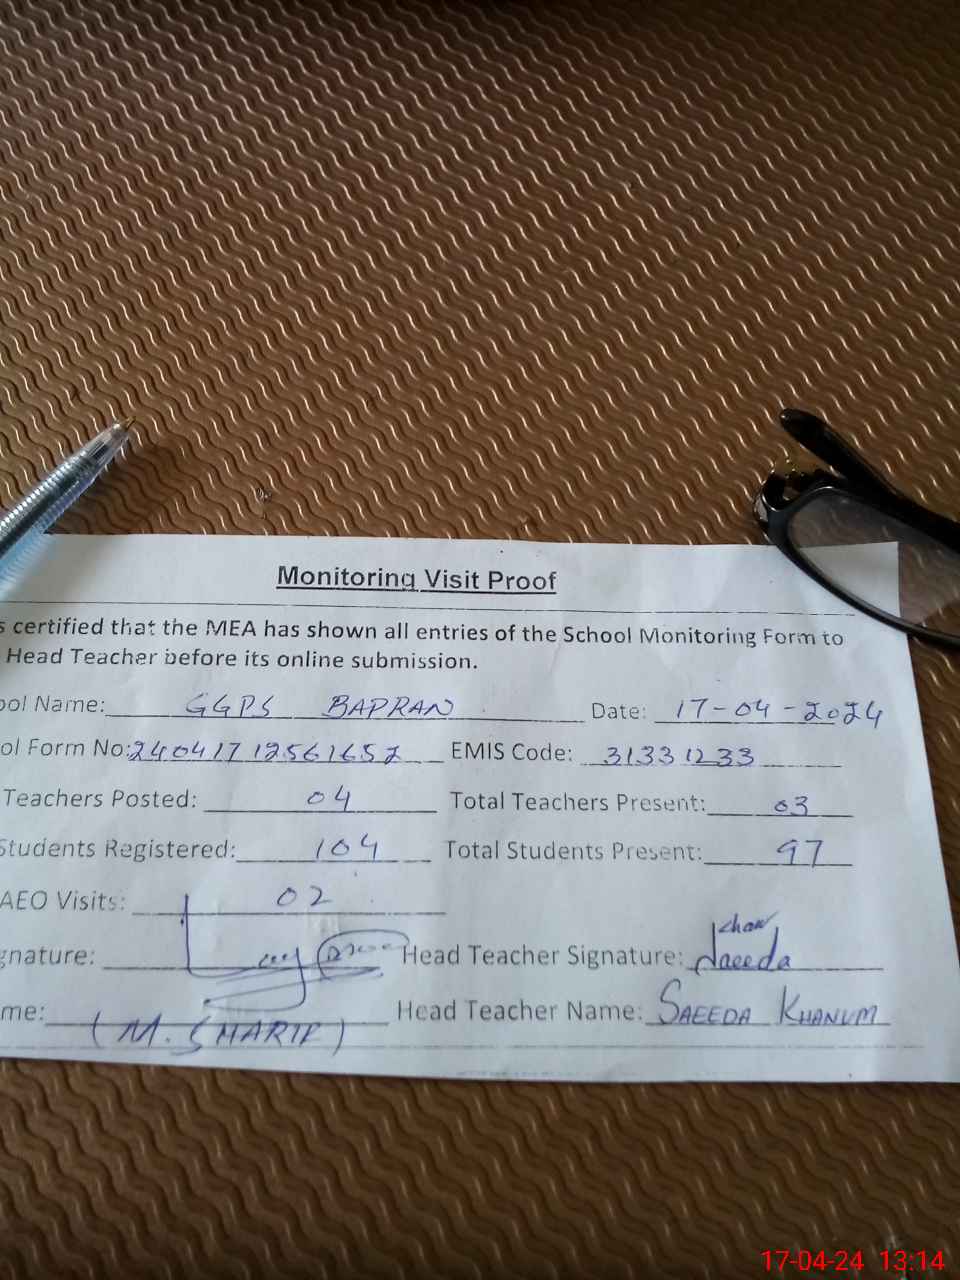 Monitoring Visit Proof
s certified that the MEA has shown all entries of the School Monitoring Form to
Head Teacher before its online submission.
ool Name: GGPS BAPRAN Date: 17-04-2024
ol Form No: 24041712561652 EMIS Code: 31331233
Teachers Posted: 04 Total Teachers Present: 03
Students Registered: 104 Total Students Present: 97
AEO Visits: 02
gnature: Head Teacher Signature: Saeeda
me: (M. SHARIF) Head Teacher Name: SAEEDA KHANUM
17-04-24 13:14